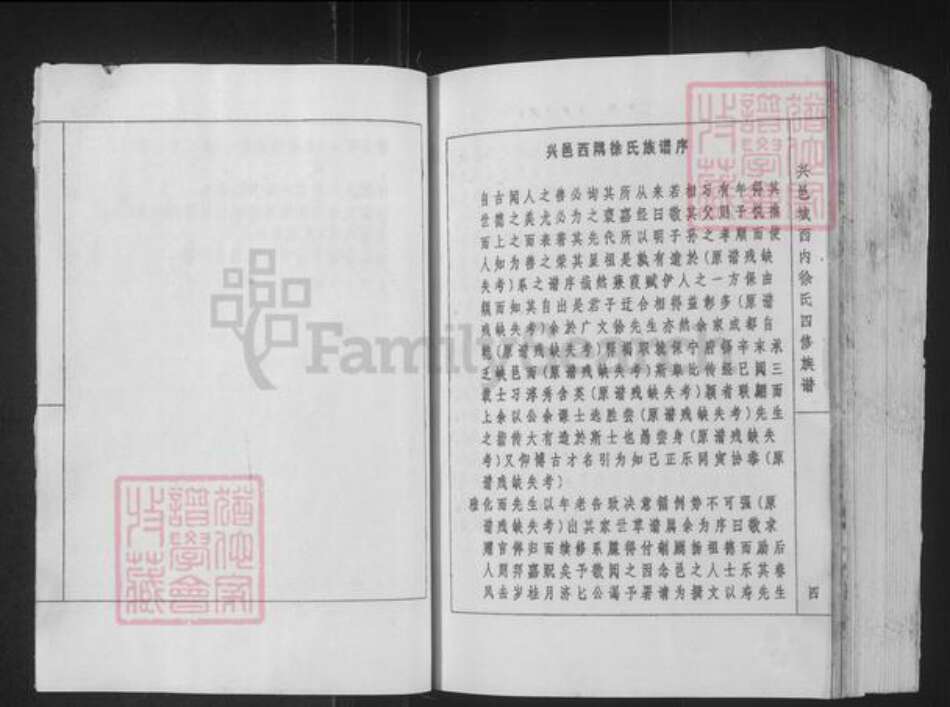 兴邑西隅徐氏族谱序
自古闻人之善必询其所从来若相习有年得其
世德之美尤必为之褒嘉经曰敬其父则子悦推
而上之而表著其先代所以明子孙之孝顺而使
人知为善之荣其显祖是孰有造於(原谱残缺
失考)系之谱序哉然蒹葭赋伊人之一方保由
而知其自出是君子迁合相得益彰多(原谱
残缺失考)余於广文徐先生亦然余家成都自
(原谱残缺失考)释褐职教保宁府辛未承
乏峡邑而(原谱残缺失考)斯皋比传经已阅三
载士习淳秀含英(原谱残缺失考)颖者联翩而
上余以公余课士选胜尝(原谱残缺失考)先生
之指传大有造於斯士也愚尝身(原谱残缺失
考)又仰博古才名引为知己正乐同寅协恭(原
谱残缺失考)
雅化而先生以年老告致决意循例势不可强(原
谱残缺失考)出其家世草谱属余为序曰敬求
赠官俸归而续修系牒得付剞劂扬祖德而励后
人则拜嘉贶矣予敬阅之因念邑之人士乐其春
风去岁桂月济匕公谒予署请为撰文以寿先生
兴邑城西内徐氏四修族谱
四
谱学会
收藏
FamilySearch